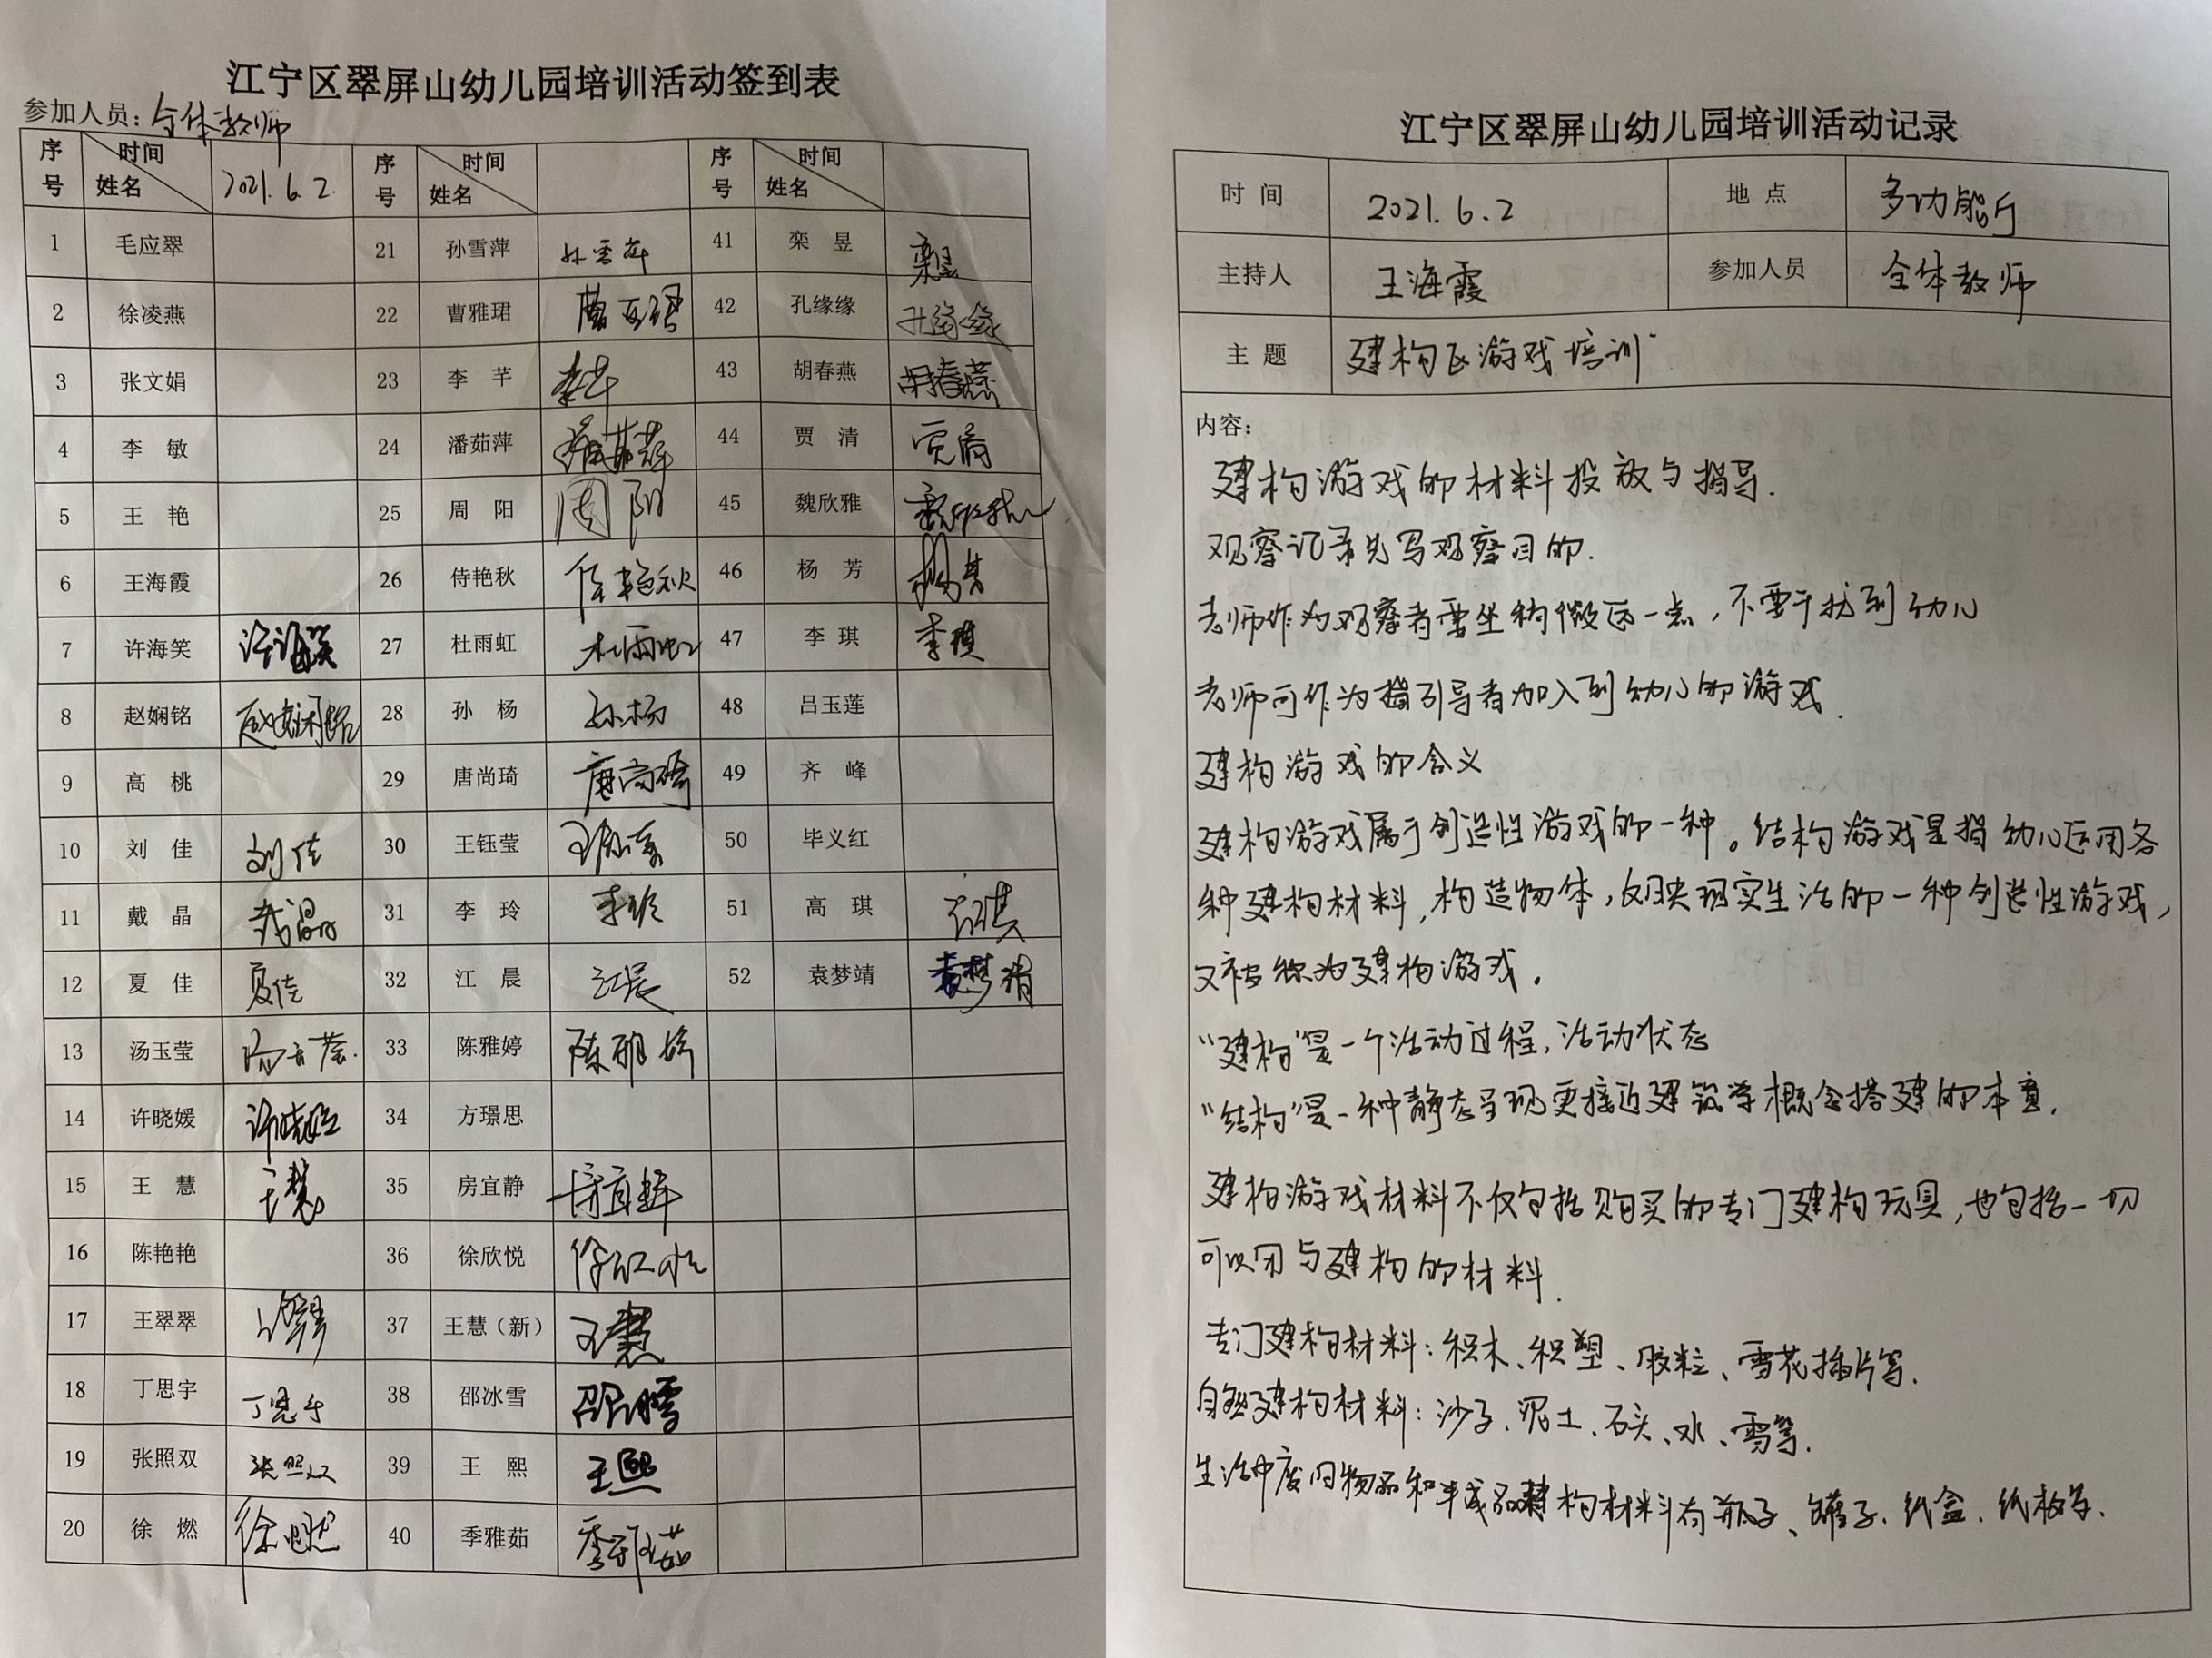 江宁区翠屏山幼儿园培训活动签到表
参加人员：全体教师
序号 时间 姓名 2021.6.2 序号 时间 姓名 序号 时间 姓名
1 毛应翠 21 孙雪萍 孙雪萍 41 栾昱 栾昱
2 徐凌燕 22 曹雅珺 曹雅珺 42 孔缘缘 孔缘缘
3 张文娟 23 李芊 李芊 43 胡春燕 胡春燕
4 李敏 24 潘茹萍 潘茹萍 44 贾清 贾清
5 王艳 25 周阳 周阳 45 魏欣雅 魏欣雅
6 王海霞 26 侍艳秋 侍艳秋 46 杨芳 杨芳
7 许海笑 许海笑 27 杜雨虹 杜雨虹 47 李琪 李琪
8 赵娴铭 赵娴铭 28 孙杨 孙杨 48 吕玉莲
9 高桃 29 唐尚琦 唐尚琦 49 齐峰
10 刘佳 刘佳 30 王钰莹 王钰莹 50 毕义红
11 戴晶 戴晶 31 李玲 李玲 51 高琪 高琪
12 夏佳 夏佳 32 江晨 江晨 52 袁梦靖 袁梦靖
13 汤玉莹 汤玉莹 33 陈雅婷 陈雅婷
14 许晓媛 许晓媛 34 方璟思
15 王慧 王慧 35 房宜静 房宜静
16 陈艳艳 36 徐欣悦 徐欣悦
17 王翠翠 王翠翠 37 王慧（新） 王慧
18 丁思宇 丁思宇 38 邵冰雪 邵冰雪
19 张照双 张照双 39 王熙 王熙
20 徐燃 徐燃 40 季雅茹 季雅茹
江宁区翠屏山幼儿园培训活动记录
时间 2021.6.2 地点 多功能厅
主持人 王海霞 参加人员 全体教师
主题 建构区游戏培训
内容：
建构游戏的材料投放与指导.
观察记录先写观察目的.
老师作为观察者要坐稍微远一点，不要干扰到幼儿
老师可作为指引导者加入到幼儿的游戏.
建构游戏的含义
建构游戏属于创造性游戏的一种。结构游戏是指幼儿运用各
种建构材料，构造物体，反映现实生活的一种创造性游戏，
又被称为建构游戏.
“建构”是一个活动过程，活动状态
“结构”是一种静态呈现更接近建筑学概念搭建的本意.
建构游戏材料不仅包括购买的专门建构玩具，也包括一切
可以用与建构的材料.
专门建构材料：积木、积塑、胶粒、雪花插片等.
自然建构材料：沙子、泥土、石头、水、雪等.
生活中废旧物品和半成品建构材料有瓶子、罐子、纸盒、纸板等.